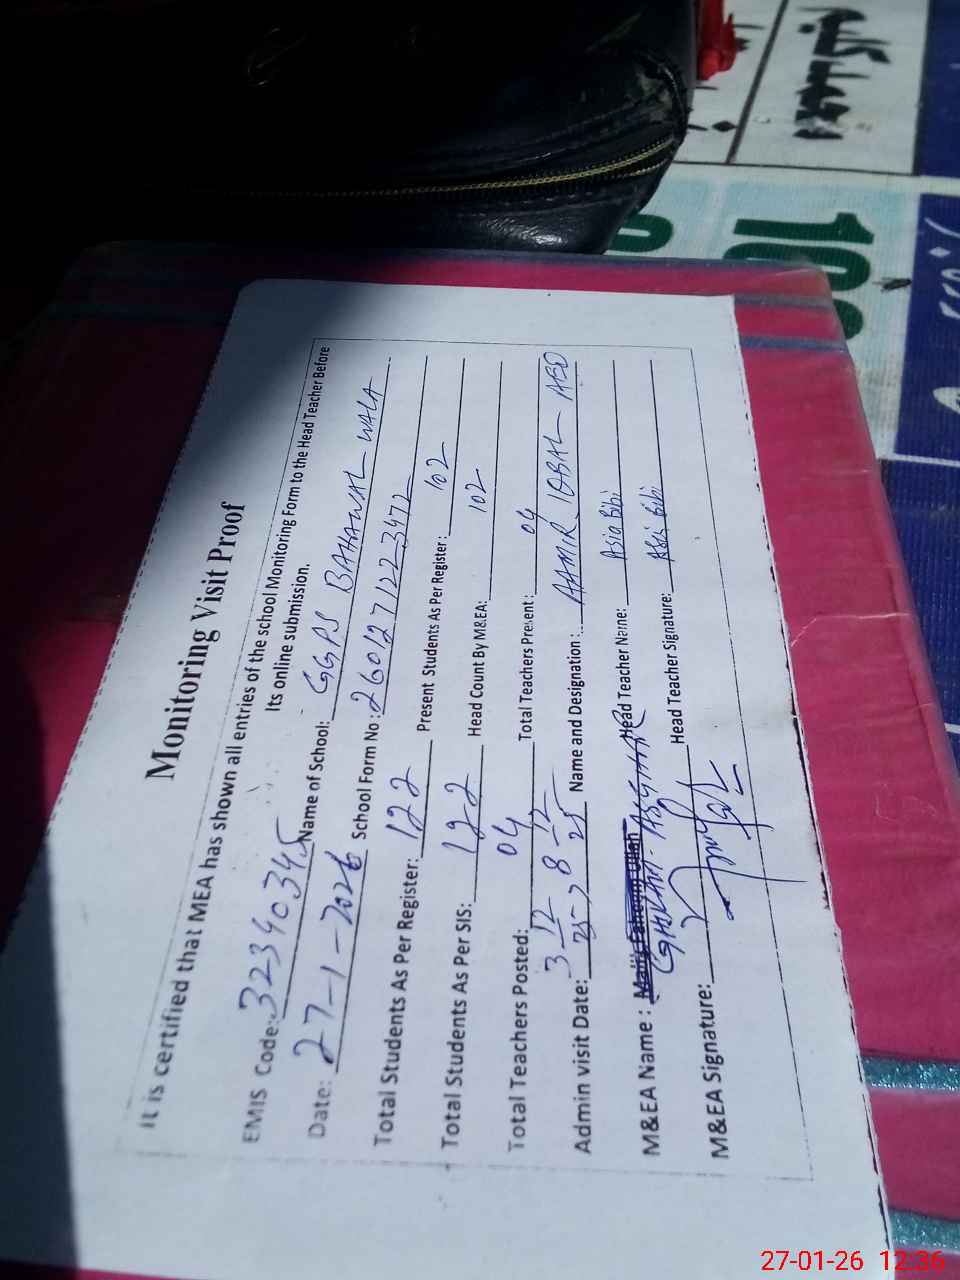 Monitoring Visit Proof
It is certified that MEA has shown all entries of the school Monitoring Form to the Head Teacher Before
Its online submission.
EMIS Code: 32340345 Name of School: GGPS BAHAWAL WALA
Date: 27-1-2026 School Form No: 2601271223472
Total Students As Per Register: 122 Present Students As Per Register: 102
Total Students As Per SIS: 122 Head Count By M&EA: 102
Total Teachers Posted: 04 Total Teachers Present: 04
Admin visit Date: Name and Designation: AAMIR IQBAL AEO
M&EA Name: ASGHAR Head Teacher Name: Asia Bibi
M&EA Signature: Head Teacher Signature: Asia Bibi
100
27-01-26 12:36